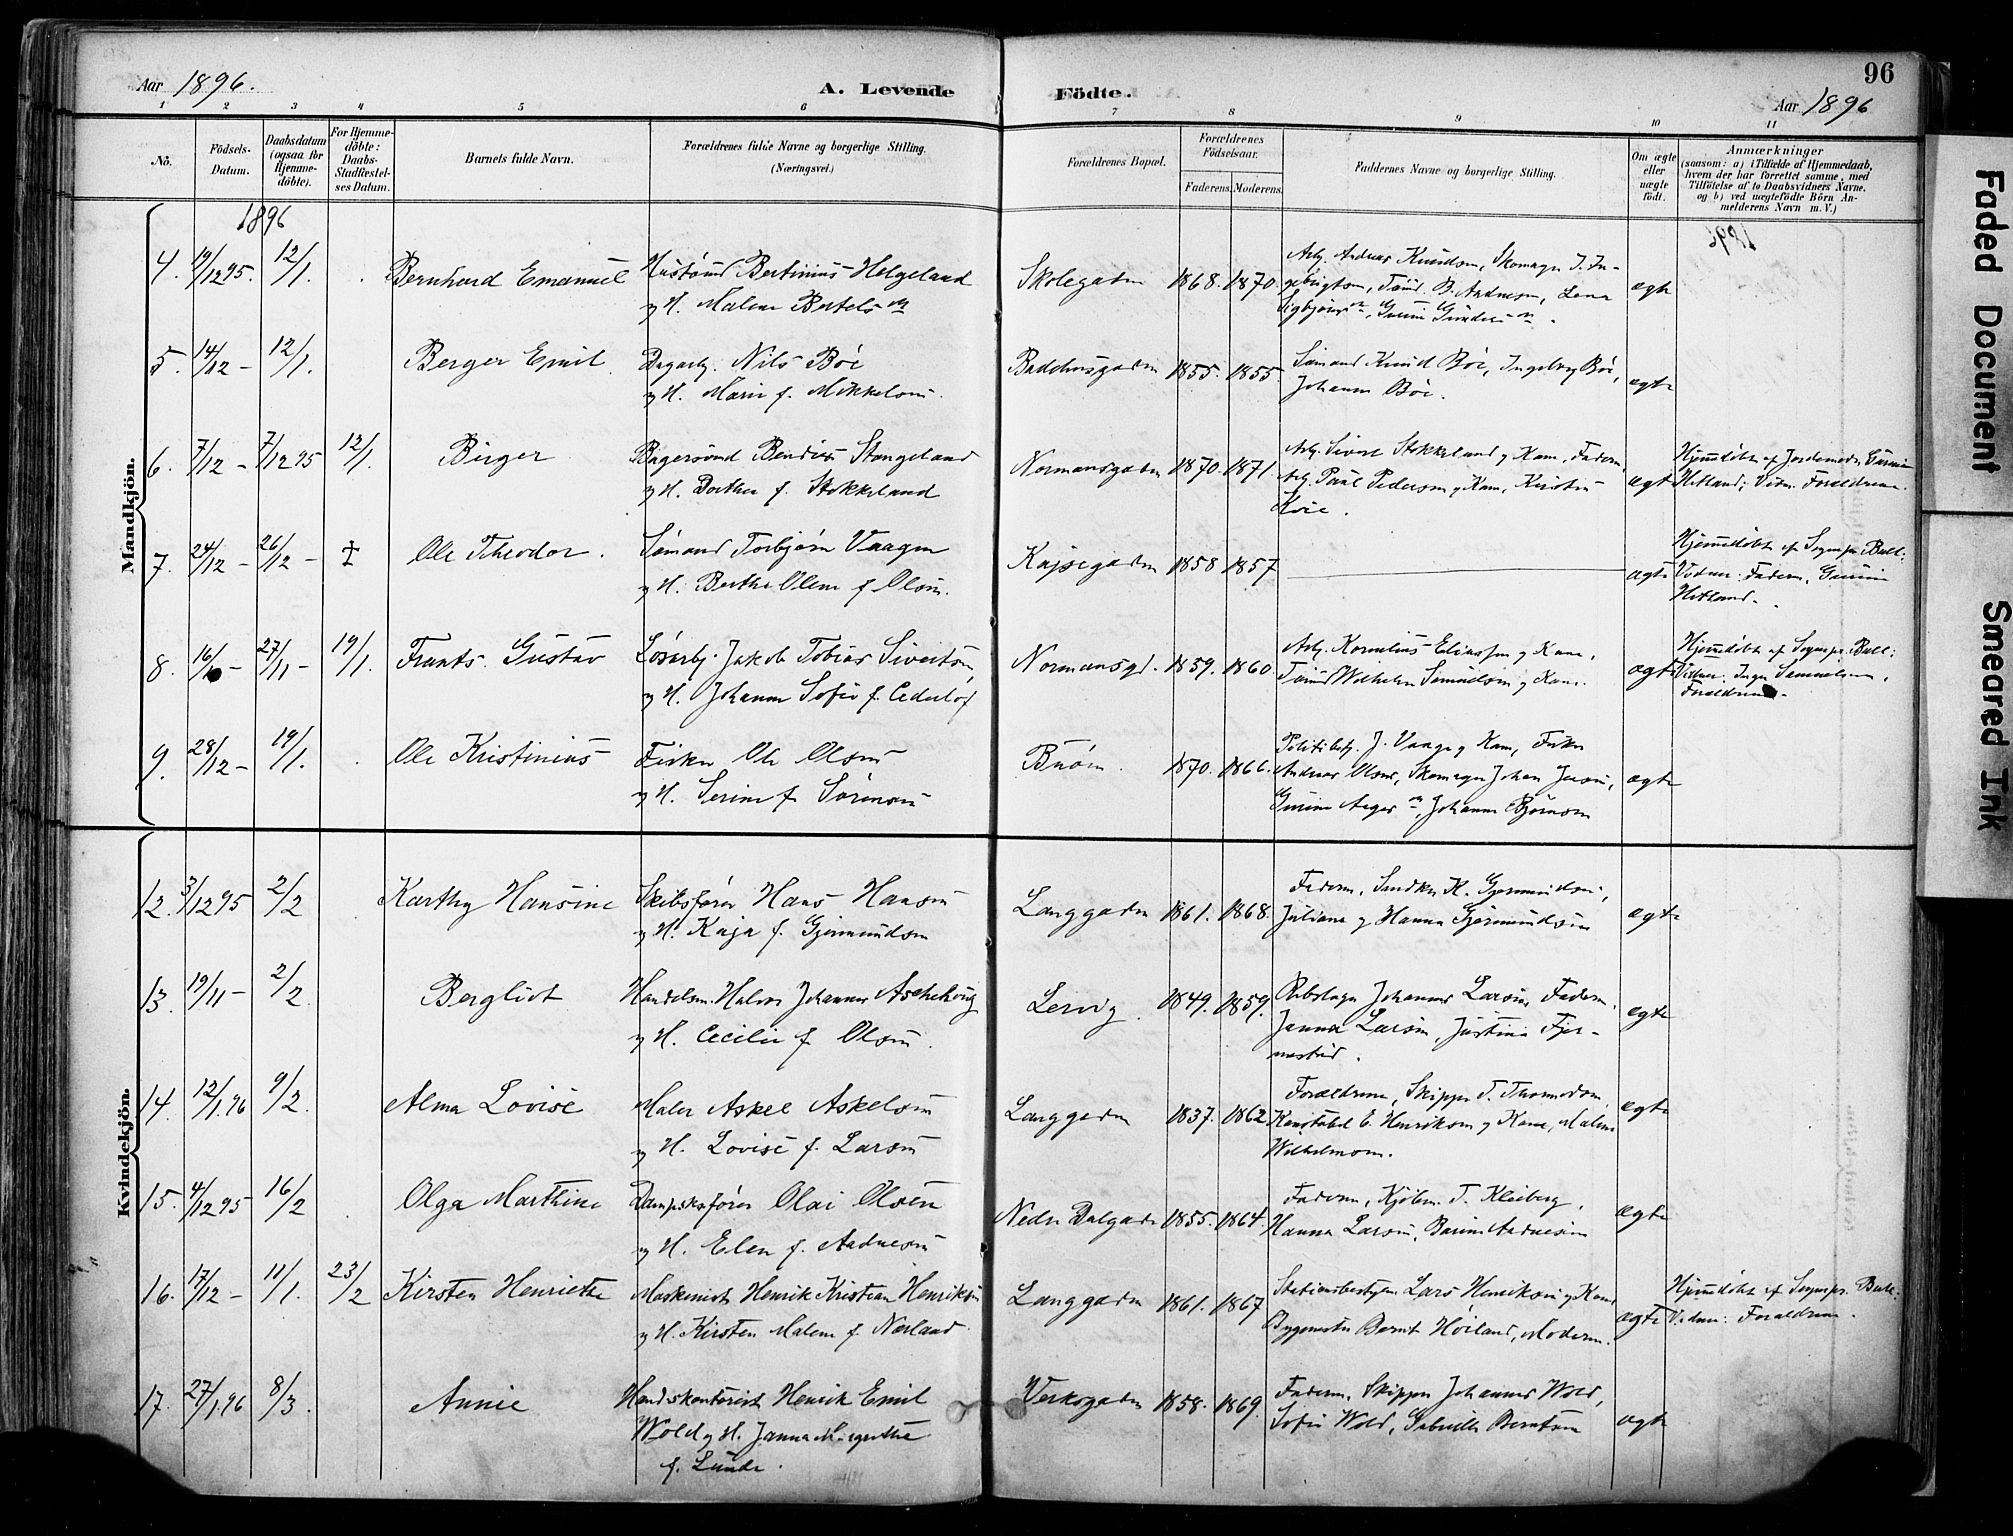 96
Aar 1896.
A. Levende
Födte.
Aar 1896
1 2 3 4 5 6 7 8 9 10 11
No.
Födsels-Datum.
Daabsdatum (ogsaa for Hjemmedöbte).
For Hjemmedöbte: Daabs-Stadfæstelses Datum.
Barnets fulde Navn.
Forældrenes fulde Navne og borgerlige Stilling. (Næringsvei.)
Forældrenes Bopæl.
Forældrenes Födselsaar.
Faderens. Moderens.
Faddernes Navne og borgerlige Stilling.
Om ægte eller uægte födt.
Anmærkninger
(saasom: a) i Tilfælde af Hjemmedaab, hvem der har forrettet samme, med Tilföielse af to Daabsvidners Navne. og b) ved uægtefödte Börn Anmelderens Navn m. V.)
Mandkjön.
1896
4. 19/12 95. 12/1. Bernhard Emanuel
Bertinius Helgeland
og H. Malene Bertelsen
Skolegaden 1868. 1870.
Arb. Andreas Knudsen, Skomager
ægte
5. 14/12 - 12/1. Berger Emil.
Dagarb. Nils Böe
og H. Marie f. Mikkelsen.
Badehusgaden 1855. 1855.
Sömand Knud Böe, Ingeborg Böe,
Johanne Böe.
ægte
6. 7/12 - 7/12 95 12/1. Birger
Bagersvend Stangeland
og H. Dorthea f. Stokkeland
Normansgaden 1870. 1871.
Arb. Sivert Stokkeland og Kone, Faderen,
Arb. Paul Pedersen og Kone, Kirstine
ægte
Hjemmedöbt af Jordemoder
Hetland; Vidn. Forældrene.
7. 24/12 - 26/12 - ‡ Ole Theodor.
Sömand Torbjörn Vaagen
og H. Berthe Olene f. Olsen.
Kajsegaden 1858 1857
ægte
Hjemmedöbt af Sognepr. Bull.
Vidner: Faderen,
Hetland.
8. 16/10 - 27/11 - 19/1. Frants Gustav
Lösarb. Jakob Tobias Sivertsen
og H. Johanne Sofie f. Cederlöf
Normansgd. 1859. 1860
Arb. Kornelius Eliassen og Kone,
Wilhelm Samuelsen og Kone.
ægte
Hjemmedöbt af Sognepr. Bull.
Vidner: Inger Samuelsen,
Forældrene.
9. 28/12 - 19/1. Ole Kristinius
Fisker Ole Olsen
og H. Serine f. Sörensen
Buöen. 1870. 1866.
Politibetj. J. Vaage og Kone, Fisker
Andreas Olsen, Skomager Johan
Johanne Björnsen
ægte
Kvindekjön.
12. 3/12 95 2/2 Karthy Hansine
Skibsförer Hans Hansen
og H. Kaja f. Gjermundsen
Langgaden 1861. 1868.
Faderen, Snedker K. Gjermundsen,
Juliane og Hanna Gjermundsen
ægte
13. 19/11 - 2/2 Bergliot
Handelsm. Halvor Johannes Aschehoug
og H. Cecilie f. Olsen.
Lervig. 1849. 1859.
Rebslager Johannes Larsen, Faderen,
Janna Larsen, Justina Fjermestad.
ægte
14. 12/1 96 9/2. Alma Lovise
Maler Askel Askelsen
og H. Lovise f. Larsen
Langgaden 1837. 1862
Forældrene, Skipper T. Thorsen,
Konstabel E. Henriksen og Kone, Malene
Wilhelmsen.
ægte
15. 4/12 95 16/2 Olga Marthine
Dampskibsförer Olai Olsen
og H. Elen f. Aadnesen
Nedre Dalgade 1855. 1864.
Faderen, Kjöbm. T. Kleiberg,
Hanna Larsen, Aadnesen
ægte
16. 17/12 - 11/1. 23/2 Kirsten Henriette
Maskinist Henrik Kristian Henriksen
og H. Kirsten Malene f. Nærland
Langgaden 1861. 1867
Stationsbestyrer Lars Henriksen og Kone
Bygmester Bernt Höiland, Moderen.
ægte
Hjemmedöbt af Sognepr. Bull.
Vidner: Forældrene.
17. 27/1 96 8/3. Annie
Handelskontorist Henrik Emil
Wold og H. Janna Margrethe
f. Lunde.
Verksgaden 1858. 1869.
Faderen, Skipper Johannes Wold,
Sofie Wold, Gabrielle Berntsen
ægte
Faded Document
Smeared Ink